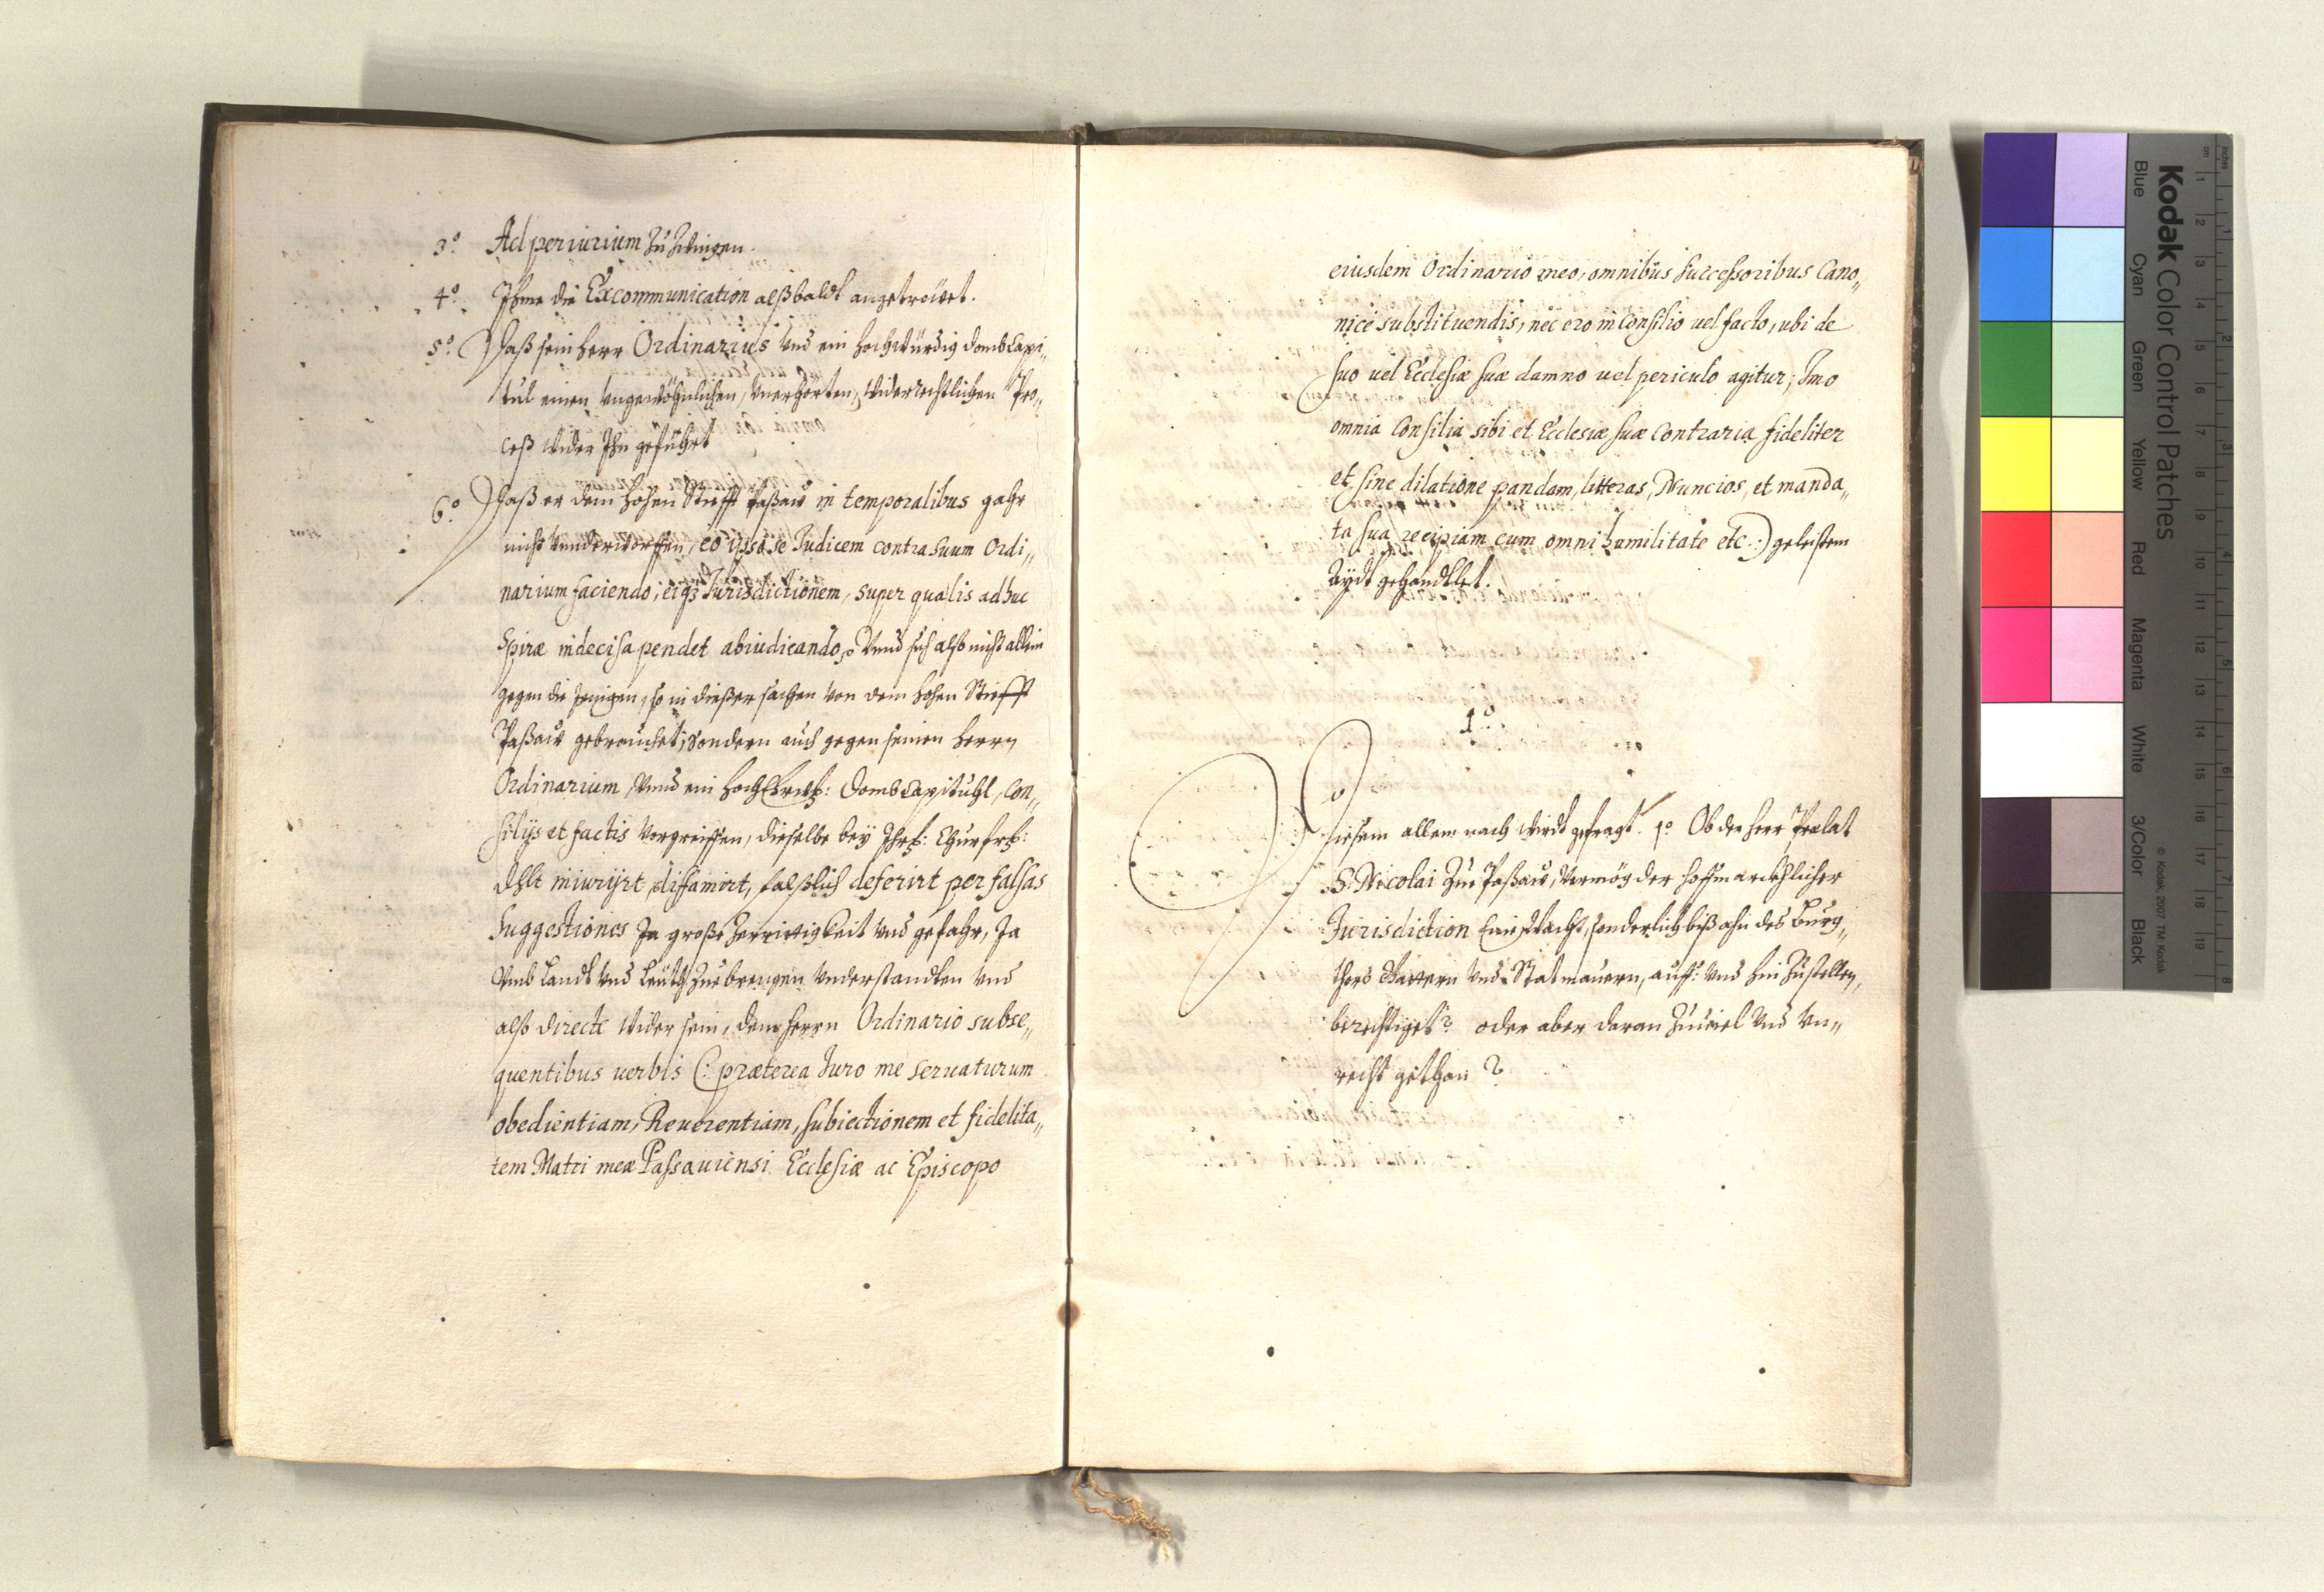 3º. Ad periurium zu zwingen.
4º. Ihme die Excommunication alßbaldt angetröwet.
5º. Daß sein herr Ordinarius und ein hochwürdig dombCapi„
tul einen ungewöhnlichen, unerhörten, widerrechtlichen Pro„
ceß wider Ihn geführt
6º. Daß er dem hohen Stifft Paßaw in temporalibus gahr
nicht underworffen, eo ipso se Iudicem contra suum Ordi„
narium faciendo, eiq3 Iurisdictionem, super qua lis adhuc
Spiræ indecisa pendet abiudicando, Unnd sich also nicht allein
gegen die Jenigen, so in dießer sachen von dem hohen Stifft
Paßaw gebrauchet, sondern auch gegen seinen herrn
Ordinarium, unnd ein HochEhrw: DombCapituhl, Con„
silijs et factis vorgreiffen, dieselbe bey Ihr: Churfr:
Dhlt iniurijrt, diffamirt, falßlich deferirt per falsas
suggestiones In große zerrittigkeit und gefahr, Ja
Umb Landt und Leuth zue bringen understandten und
also directe wider sein, dem herrn Ordinario subse„
quentibus uerbis (: præterea Iuro me seruaturum
obedientiam, Reuerentiam, subiectionem et fidelita„
tem Matri meæ Passauiensi Ecclesiæ ac Episcopo
eiusdem Ordinario meo, omnibus successoribus Cano„
nicè substituendis, nec ero in Consilio uel facto, ubi de
suo uel Ecclesiæ suæ damno uel periculo agitur; Imo
omnia Consilia sibi et Ecclesiæ suæ Contraria fideliter
et sine dilatione pandam, litteras, Nuncios, et manda„
ta sua recipiam cum omni humilitate etc:) geleistem
Aydt gehandtlet.
1º.
Diesem allem nach wirdt gefragt. 1º. Ob der herr Prælat
S. Nicolai zue Paßaw, vermög der hoffmarchlicher
Iurisdiction sonderlich biß ahn des Burg„
thors und Statmauern, auff: und hin zustellen,
berechtiget? oder aber daran zuuiel und Un„
recht gethan?
Kodak Color Control Patches
Blue Cyan Green Yellow Red Magenta White 3/Color Black
© Kodak, 2007 TM: Kodak